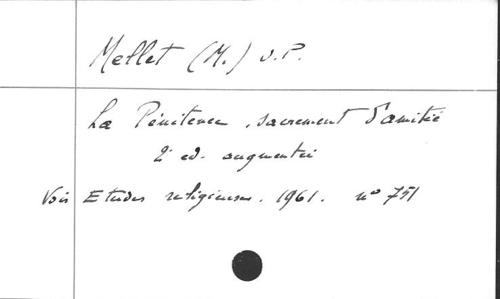 Mellet (M.) O.P.
La Pénitence, sacrement d'amitié
2e ed. augmentée
Voir Etudes religieuses. 1961. n° 751